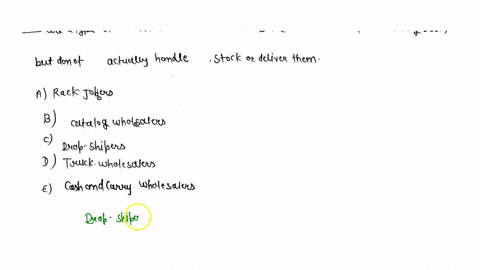 but donot actually handle , stock or deliver them.
A) Rack jobers
B) catalog wholesalers
C) Drop-shipers
D) Truck wholesalers
E) Cash and Carry wholesalers
Drop-shipe